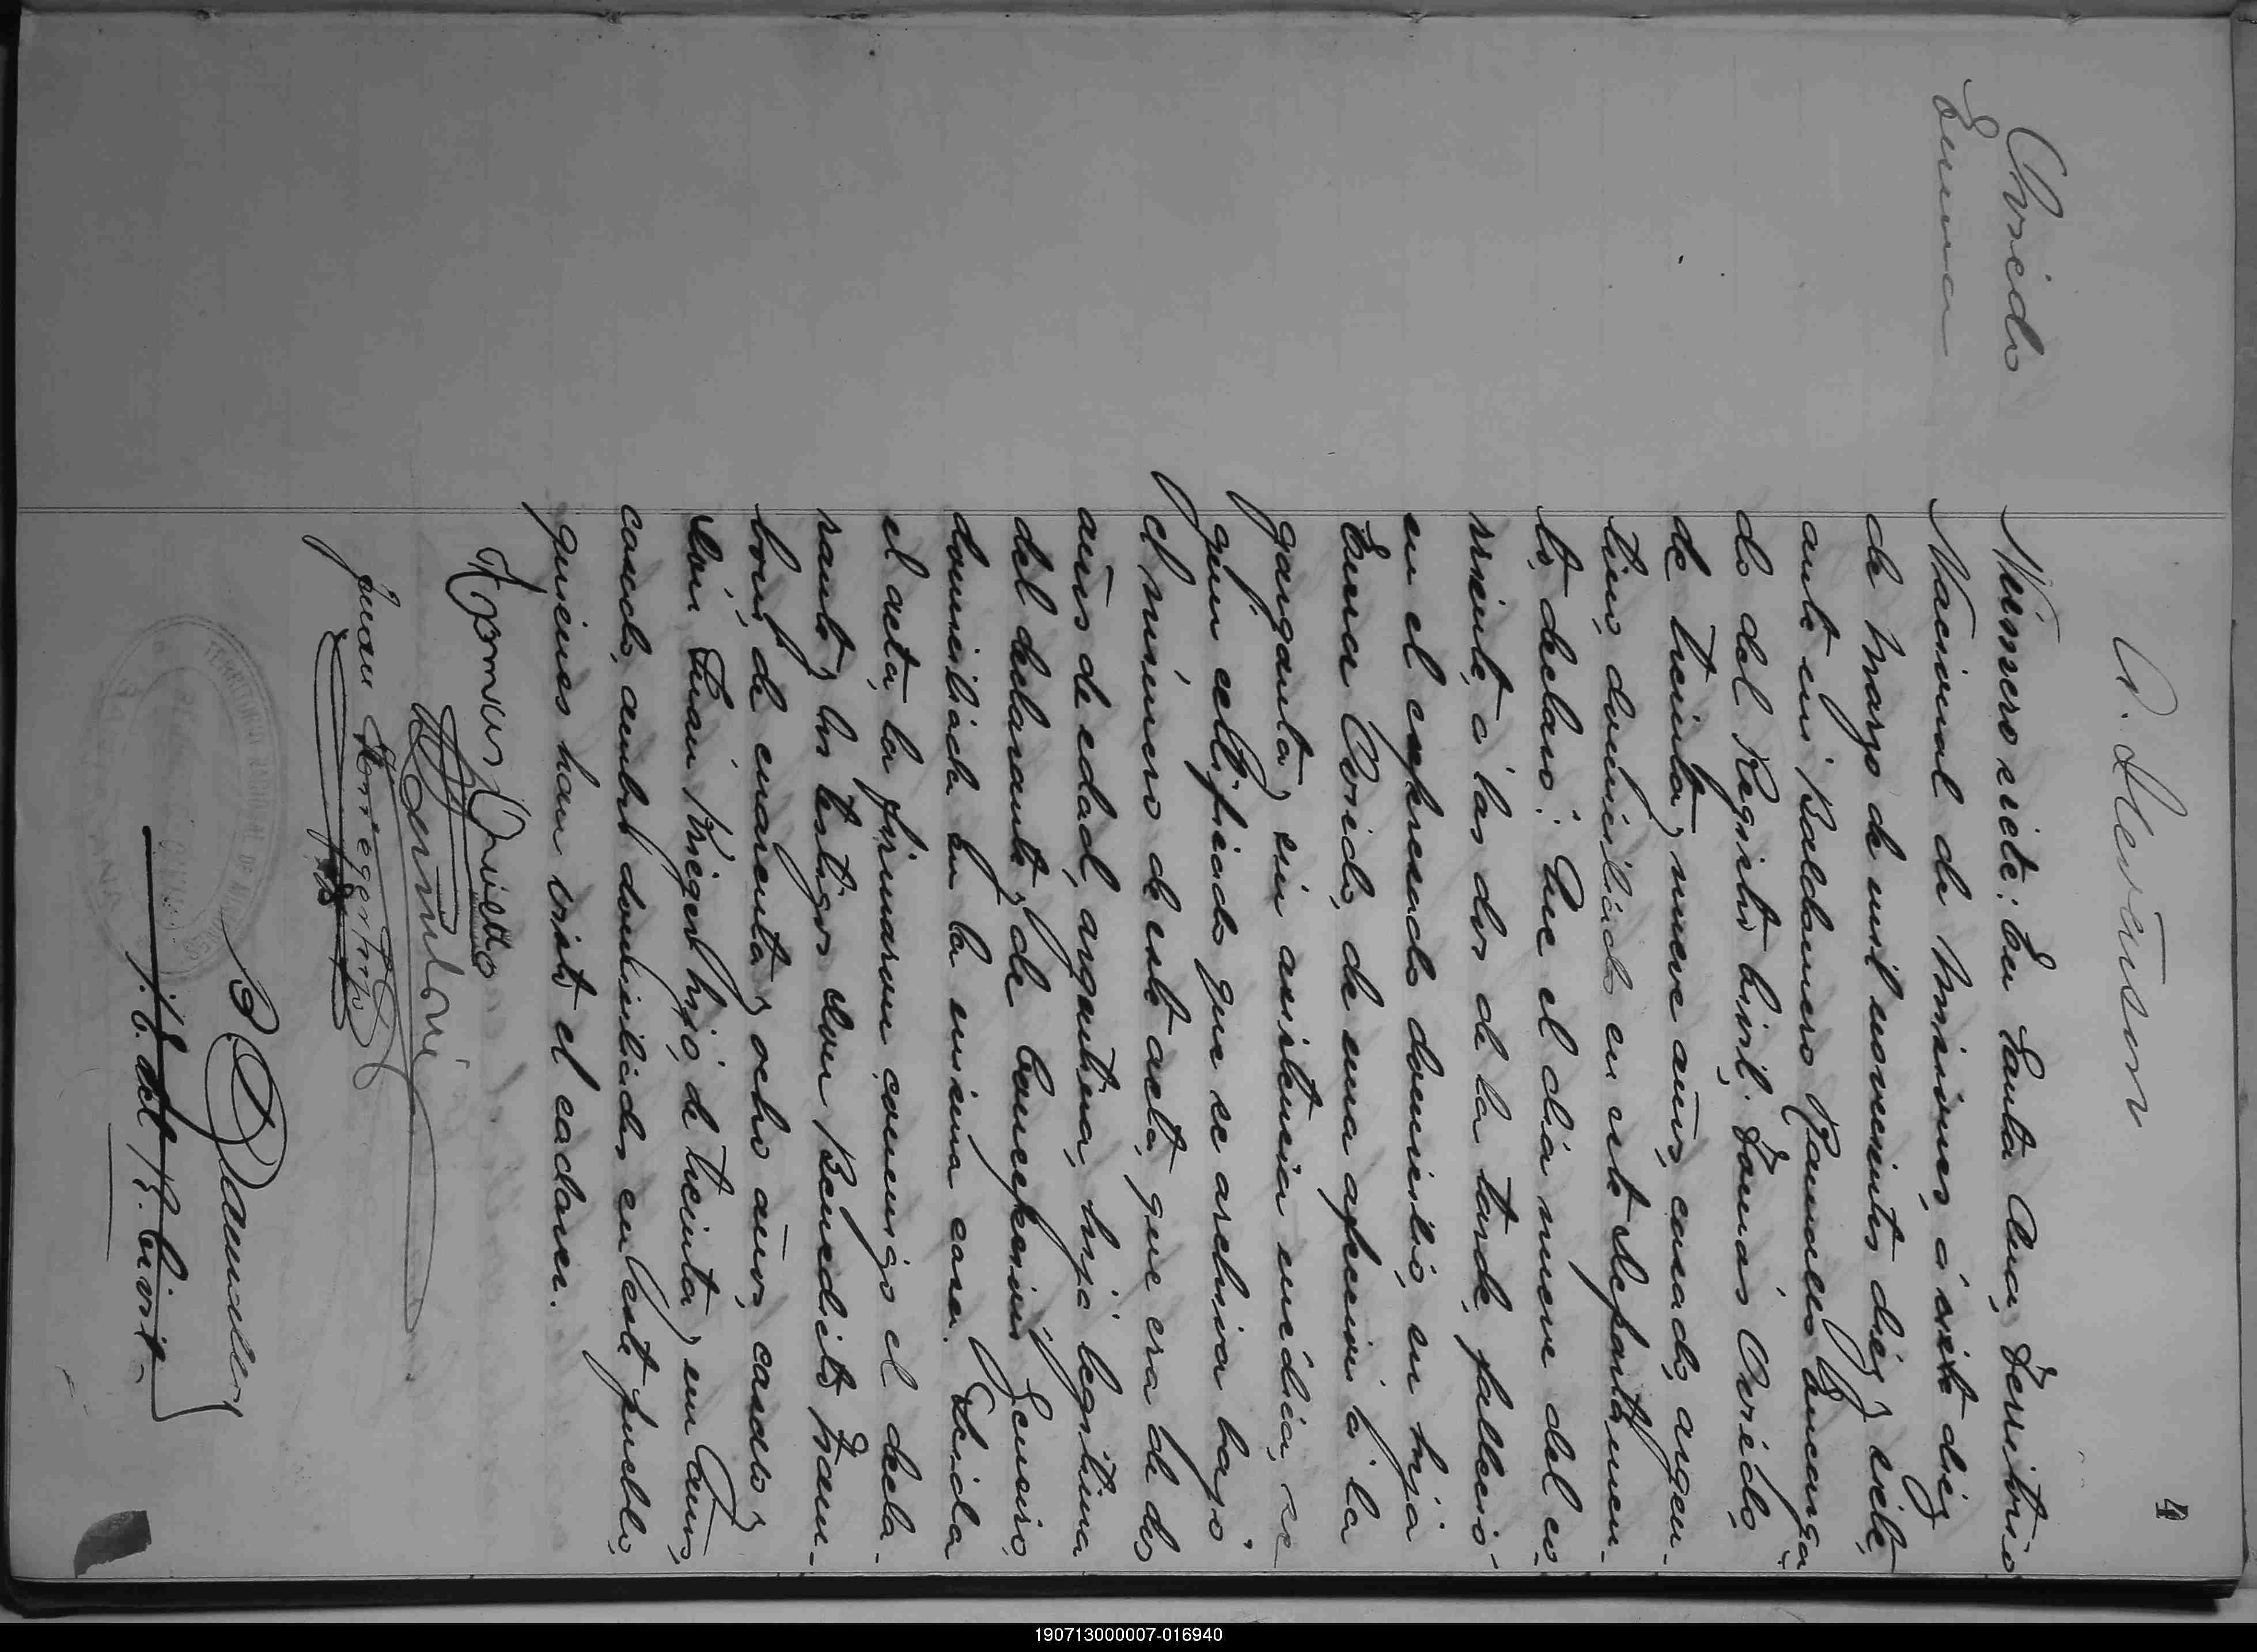 4
Oviedo
Emma
Número siete: En Santa Ana, Territorio
Nacional de Misiones, á siete diez
de Marzo de mil novecientos diez y siete,
ante mi, Baldomero Encarga-
do del Registro Civil: Tomás Oviedo,
de treinta y nueve años, casado, argen-
tino, domiciliado en este departamen-
to, declaró: Que el día nueve del co-
rriente, á las dos de la tarde, falleció
en el expresado domicilio, su hija
Emma Oviedo, de una afección á la
garganta, sin asistencia médica, se-
gún certificado que se archiva bajo
el número de este acta, que era de dos
años de edad, argentina, hija legítima
del declarante, y de Concepción
domiciliada en la misma casa. Leída
el acta, la firmaron conmigo el decla-
rante, y los testigos don Benedicto
de cuarenta y ocho años, casado y
don Juan hijo, de treinta y un años,
casado, ambos domiciliados en este pueblo,
quienes han visto el cadaver.
Juan
TERRITORIO NACIONAL DE MISIONES
SANTA ANA
J. E. del R. Civil
190713000007-016940